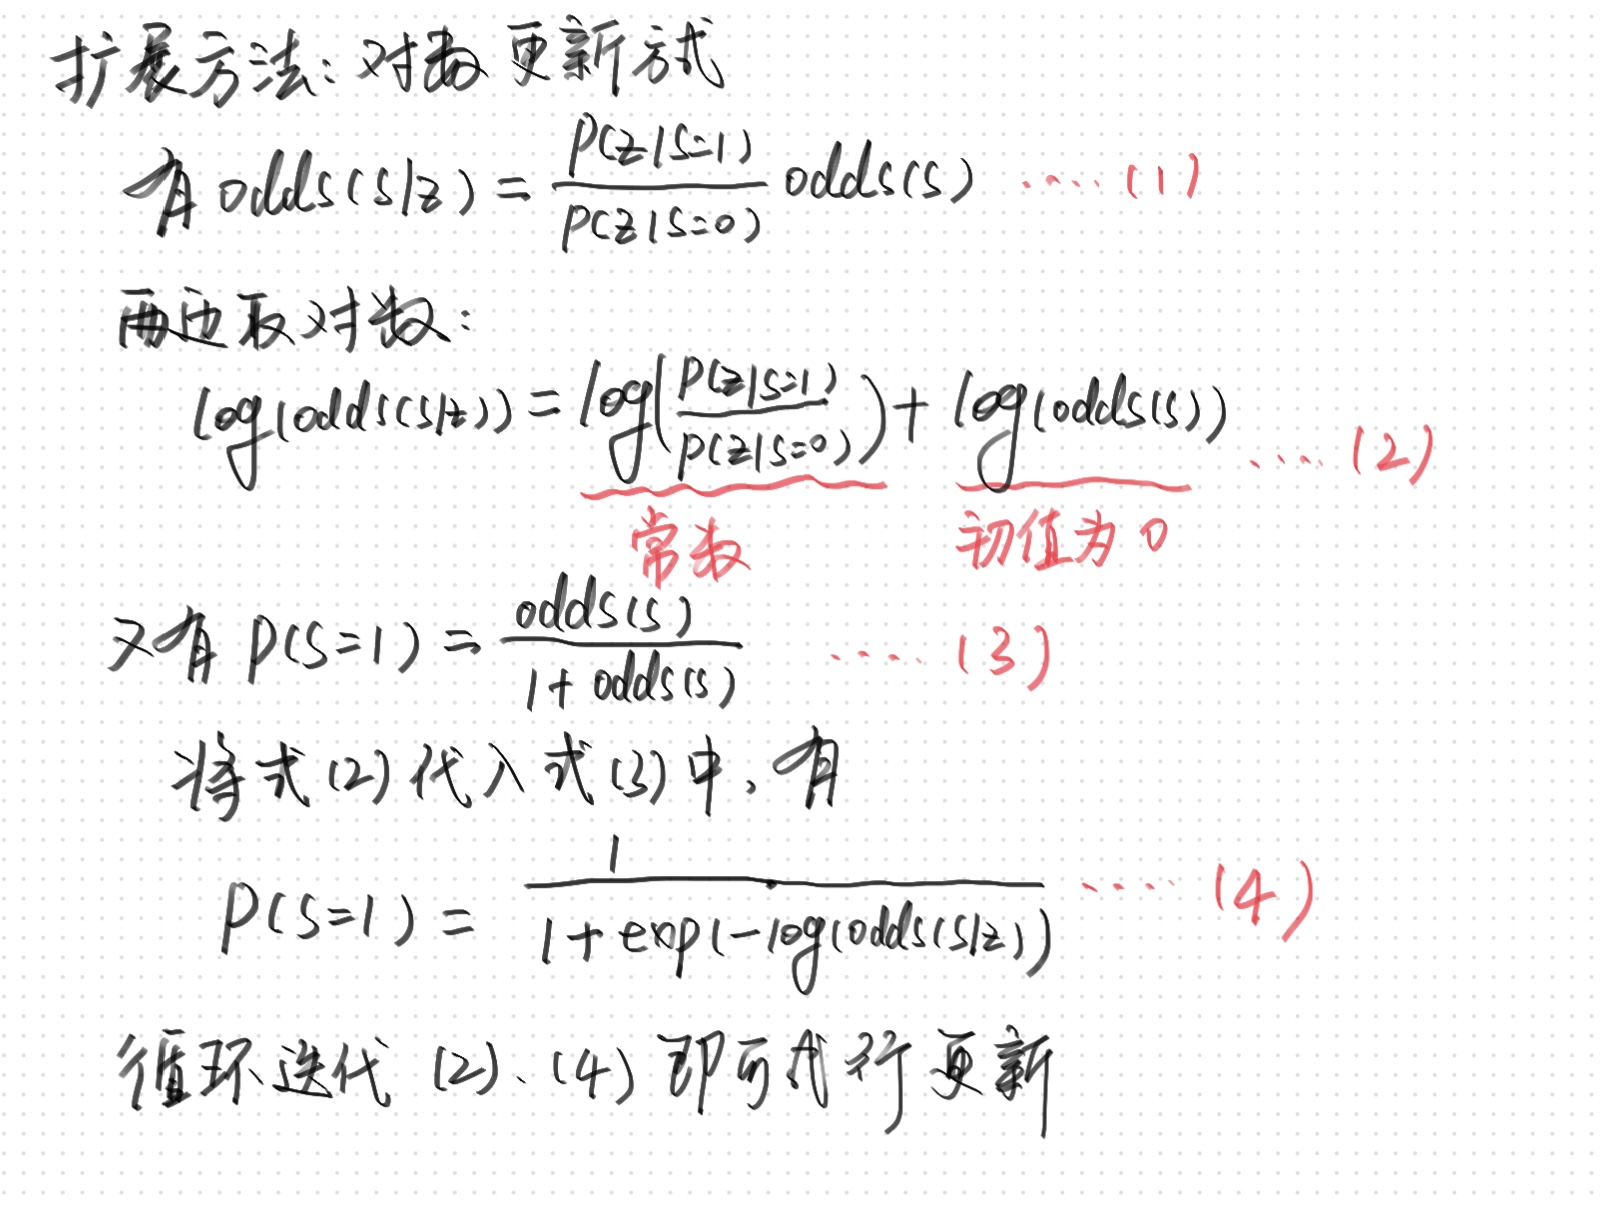 扩展方法：对数更新方式
有 odds(s|z) = P(z|s=1) / P(z|s=0) odds(s) ····(1)
两边取对数：
log(odds(s|z)) = log(P(z|s=1) / P(z|s=0)) + log(odds(s)) ····(2)
常数 初值为0
又有 P(s=1) = odds(s) / 1+odds(s) ····(3)
将式(2)代入式(3)中，有
P(s=1) = 1 / 1+exp(-log(odds(s|z))) ····(4)
循环迭代 (2)、(4) 即可进行更新